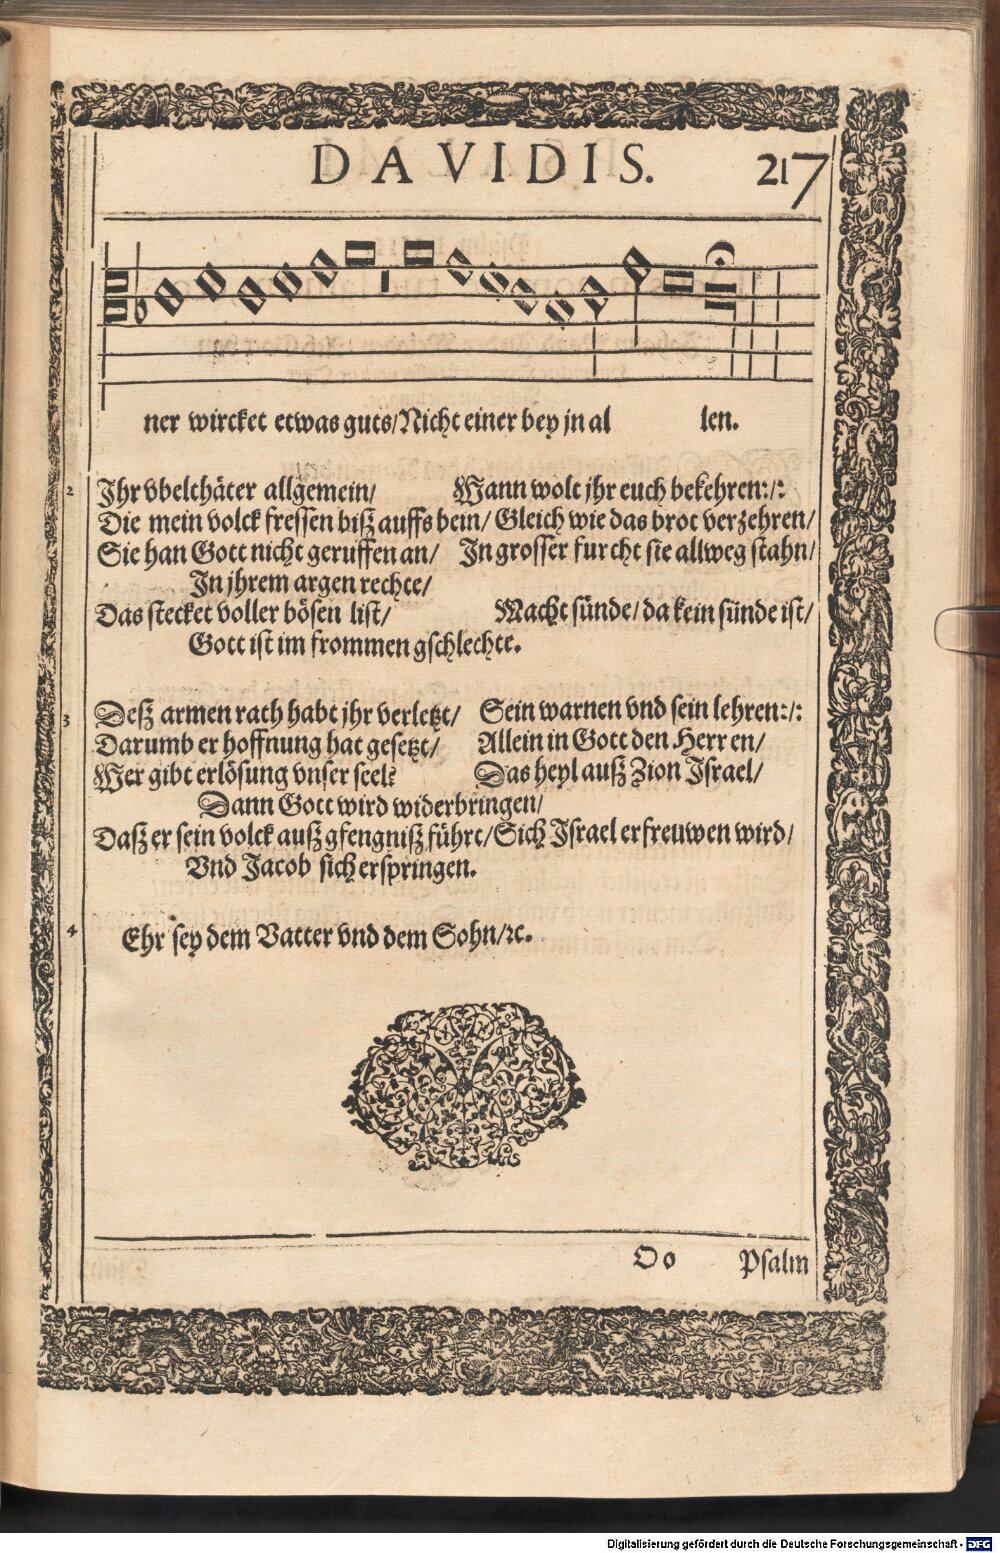 DAVIDIS. 217
ner wircket etwas guts/Nicht einer bey jn al len.
2 Jhr vbelthäter allgemein/ Wann wolt jhr euch bekehren:/:
Die mein volck fressen biß auffs bein/ Gleich wie das brot verzehren/
Sie han Gott nicht geruffen an/ Jn grosser furcht sie allweg stahn/
Jn jhrem argen rechte/
Das stecket voller bösen list/ Macht sünde/ da kein sünde ist/
Gott ist im frommen gschlechte.
3 Deß armen rath habt jhr verletzt/ Sein warnen vnd sein lehren:/:
Darumb er hoffnung hat gesetzt/ Allein in Gott den Herren/
Wer gibt erlösung vnser seel? Das heyl auß Zion Jsrael/
Dann Gott wird widerbringen/
Daß er sein volck auß gfengniß führt/ Sich Jsrael erfreuwen wird/
Vnd Jacob sich erspringen.
4 Ehr sey dem Vatter vnd dem Sohn/ꝛc.
Oo Psalm
Digitalisierung gefördert durch die Deutsche Forschungsgemeinschaft - DFG